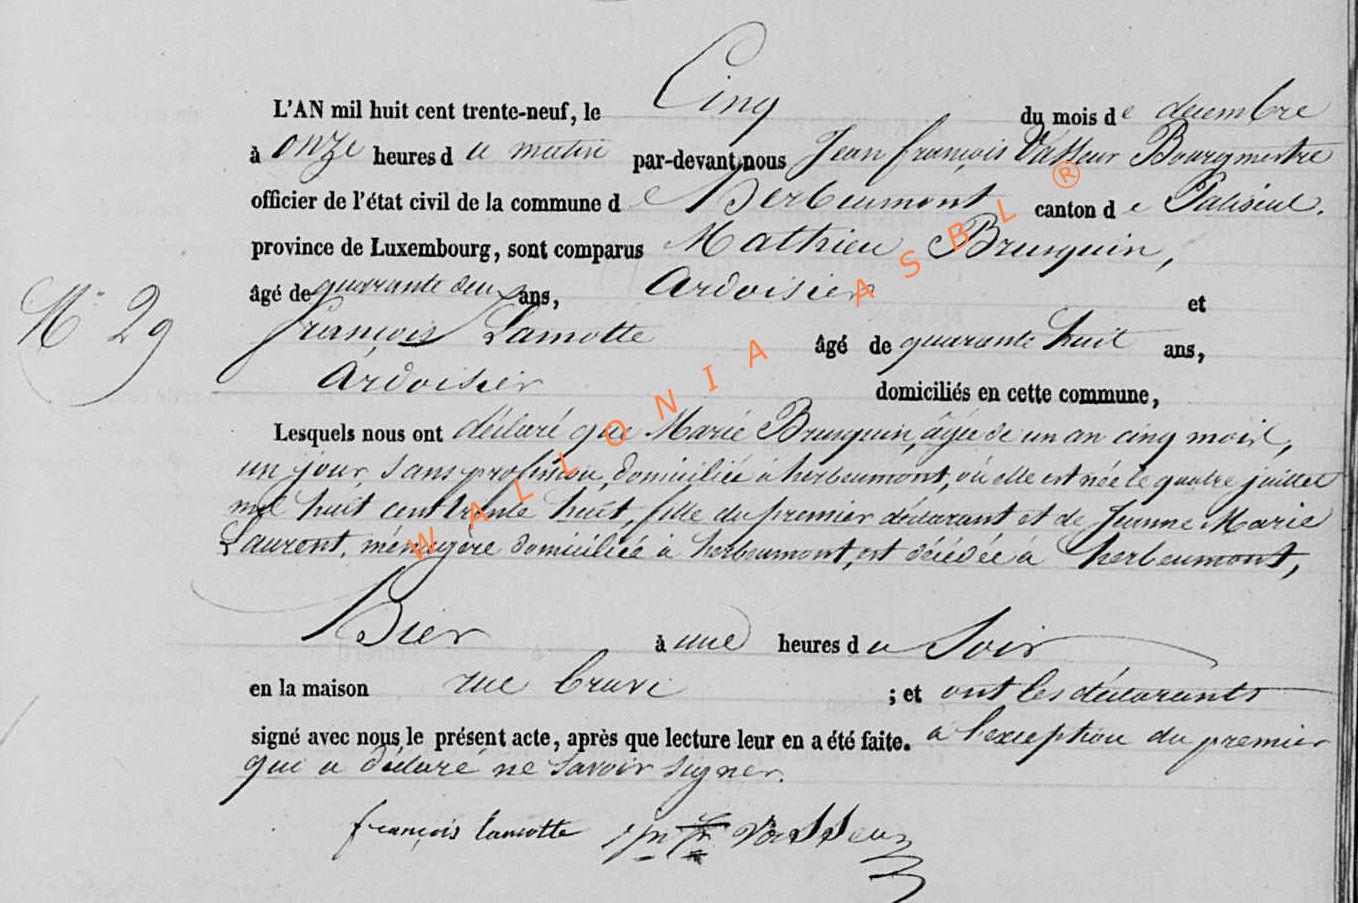 L'AN mil huit cent trente-neuf, le Cinq du mois de decembre
à onze heures du matin par-devant nous Jean françois Vasseur Bourgmestre
officier de l'état civil de la commune de Herbeumont canton de Paliseul.
province de Luxembourg, sont comparus Mathieu Brusquin,
âgé de quarante deux ans, Ardoisier et
N° 29
françois Lamotte âgé de quarante huit ans,
Ardoisier domiciliés en cette commune,
Lesquels nous ont déclaré que Marie Brusquin, âgée de un an cinq mois,
un jour, sans profession, domiciliée à herbeumont, où elle est née le quatre juillet
mil huit cent trente huit, fille du premier déclarant et de Jeanne Marie
Laurent, ménagère domiciliée à herbeumont, est décédée à herbeumont,
hier à une heures du Soir
en la maison rue ; et ont les déclarants
signé avec nous le présent acte, après que lecture leur en a été faite. a l'exception du premier
qui a déclaré ne savoir signer.
françois lamotte Vasseur
WALLONIA ASBL ®